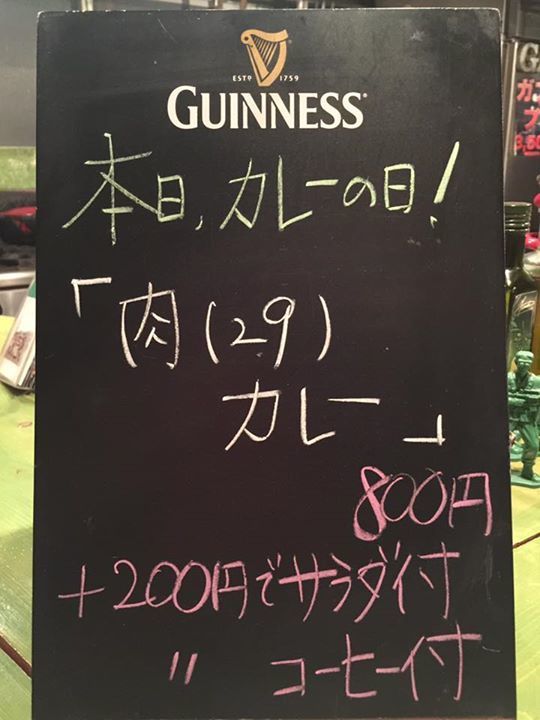 ESTD 1759
GUINNESS
本日、カレーの日!
「肉(29)
カレー」
800円
+200円でサラダ付
〃 コーヒー付